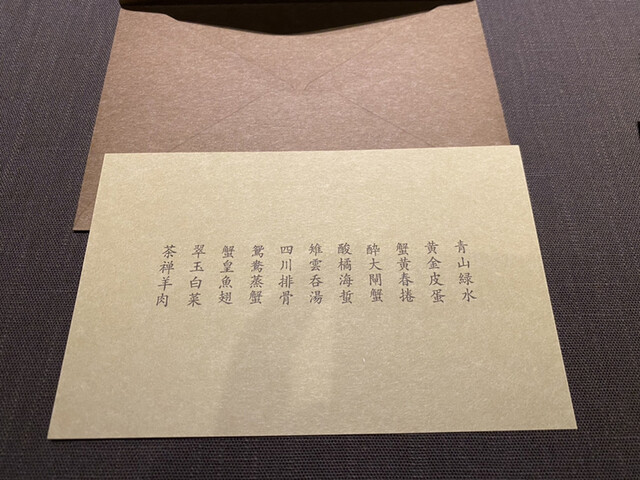 青山緑水
黄金皮蛋
蟹黄春捲
酔大閘蟹
酸橘海蜇
雉雲呑湯
四川排骨
鴛鴦蒸蟹
蟹皇魚翅
翠玉白菜
茶禅羊肉